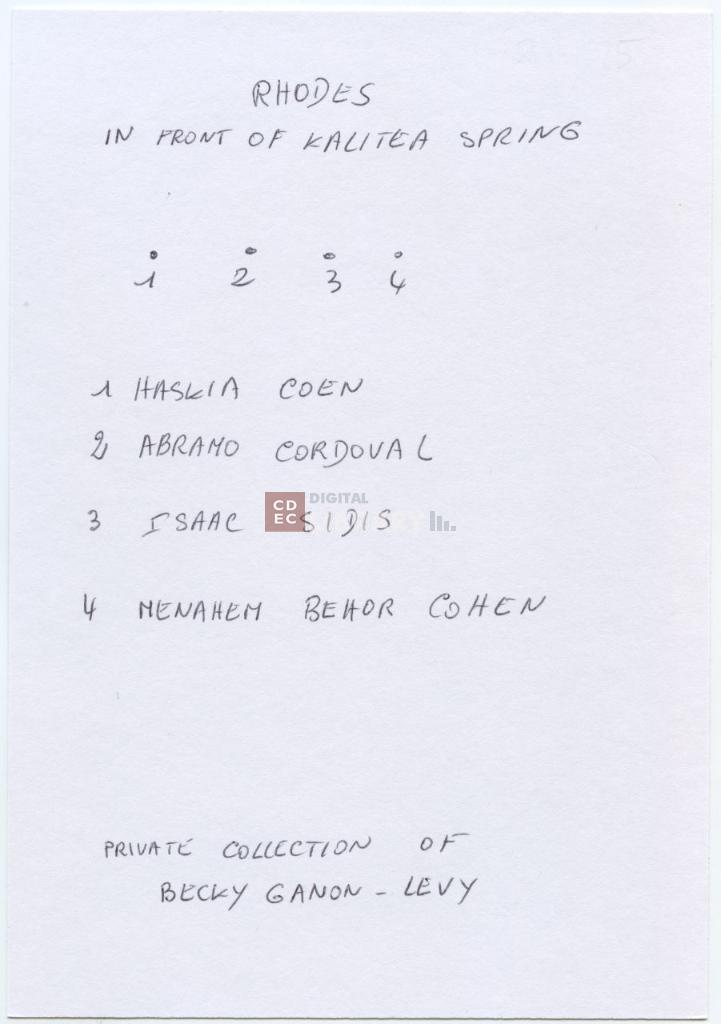 RHODES
IN FRONT OF KALITEA SPRING
1 2 3 4
1 HASKIA COEN
2 ABRAMO CORDOVAL
3 ISAAC SIDIS
CD EC DIGITAL
4 MENAHEM BEHOR COHEN
PRIVATE COLLECTION OF
BECKY GANON - LEVY